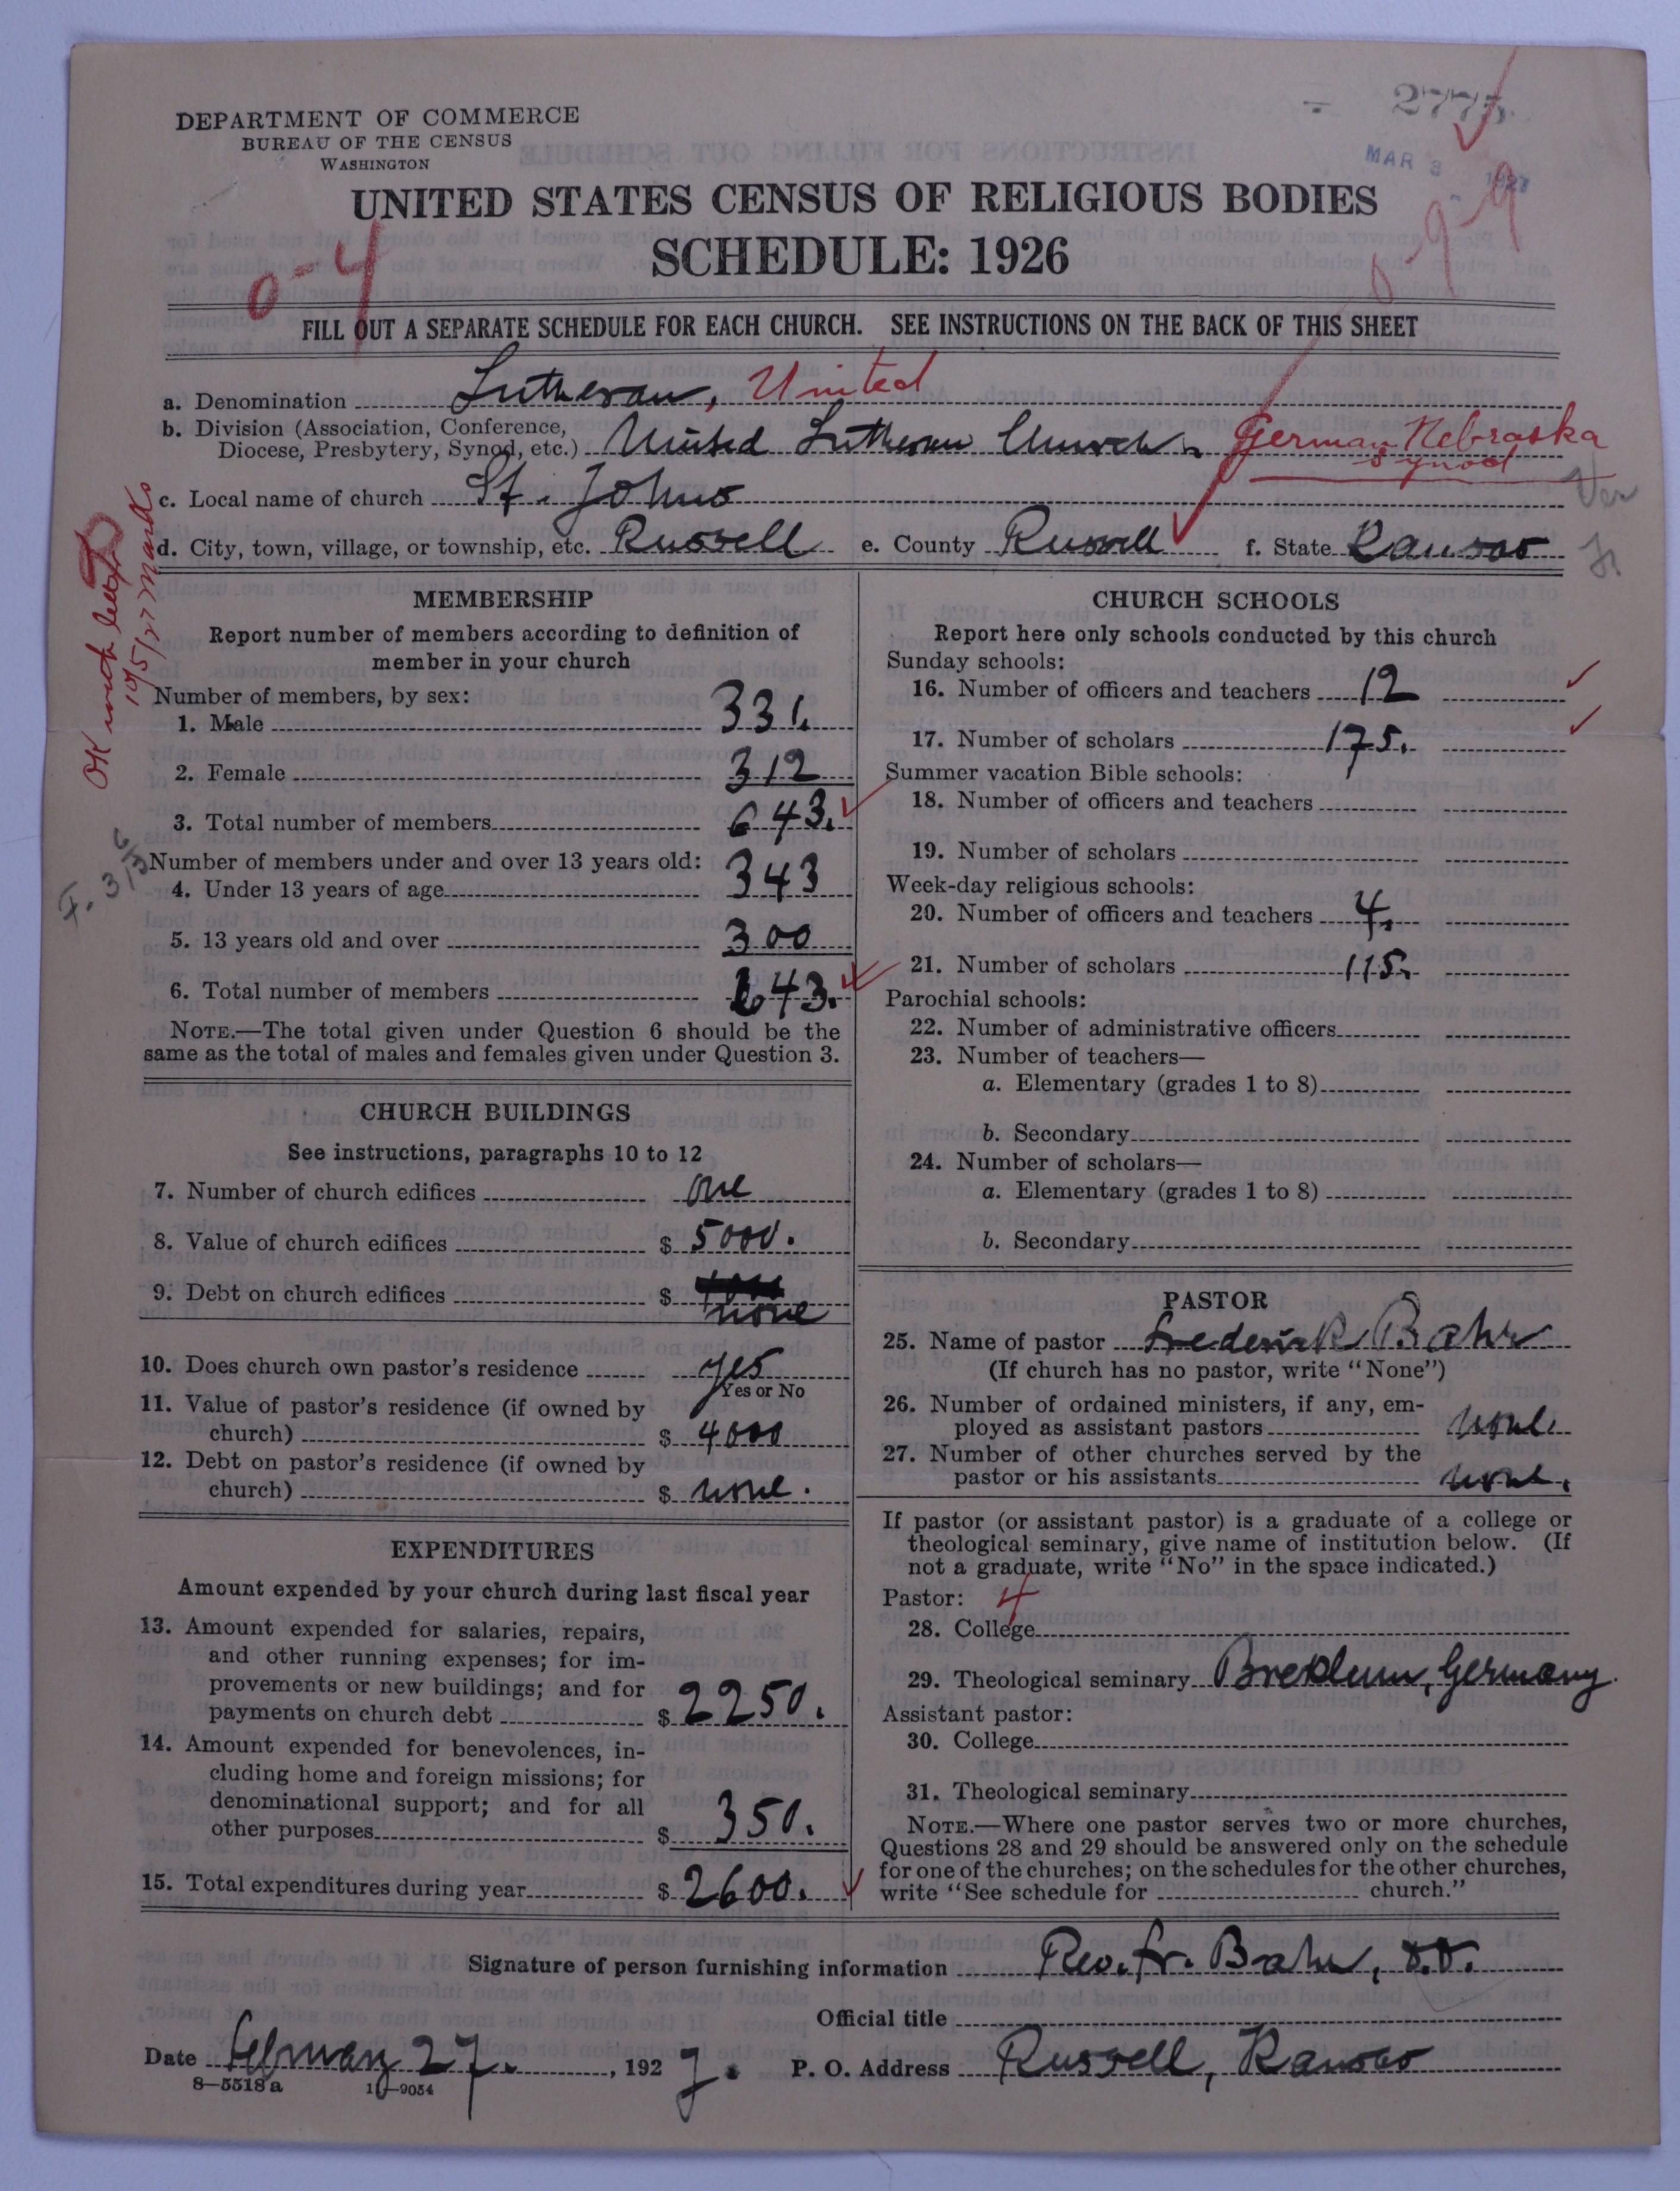 DEPARTMENT OF COMMERCE
BUREAU OF THE CENSUS
WASHINGTON
2775
MAR 8 1927
UNITED STATES CENSUS OF RELIGIOUS BODIES
SCHEDULE: 1926
0-4
0-9-9
FILL OUT A SEPARATE SCHEDULE FOR EACH CHURCH. SEE INSTRUCTIONS ON THE BACK OF THIS SHEET
a. Denomination Lutheran, United
b. Division (Association, Conference, Diocese, Presbytery, Synod, etc.) United Lutheran Church. German Nebraska Synod
c. Local name of church St. Johns
Ver
d. City, town, village, or township, etc. Russell e. County Russell f. State Kansas
OK
10/5/27 Marks
F. 313
MEMBERSHIP
Report number of members according to definition of
member in your church
Number of members, by sex:
1. Male 331.
2. Female 312
3. Total number of members 643.
Number of members under and over 13 years old:
4. Under 13 years of age 343
5. 13 years old and over 300
6. Total number of members 643.
NOTE.—The total given under Question 6 should be the
same as the total of males and females given under Question 3.
CHURCH BUILDINGS
See instructions, paragraphs 10 to 12
7. Number of church edifices one
8. Value of church edifices $ 5000.
9. Debt on church edifices $ none
10. Does church own pastor's residence yes
Yes or No
11. Value of pastor's residence (if owned by
church) $ 4000
12. Debt on pastor's residence (if owned by
church) $ none.
EXPENDITURES
Amount expended by your church during last fiscal year
13. Amount expended for salaries, repairs,
and other running expenses; for im-
provements or new buildings; and for
payments on church debt $ 2250.
14. Amount expended for benevolences, in-
cluding home and foreign missions; for
denominational support; and for all
other purposes $ 350.
15. Total expenditures during year $ 2600.
CHURCH SCHOOLS
Report here only schools conducted by this church
Sunday schools:
16. Number of officers and teachers 12
17. Number of scholars 175.
Summer vacation Bible schools:
18. Number of officers and teachers
19. Number of scholars
Week-day religious schools:
20. Number of officers and teachers 4.
21. Number of scholars 115.
Parochial schools:
22. Number of administrative officers
23. Number of teachers—
a. Elementary (grades 1 to 8)
b. Secondary
24. Number of scholars—
a. Elementary (grades 1 to 8)
b. Secondary
PASTOR
25. Name of pastor Frederick Bahr
(If church has no pastor, write "None")
26. Number of ordained ministers, if any, em-
ployed as assistant pastors none
27. Number of other churches served by the
pastor or his assistants none.
If pastor (or assistant pastor) is a graduate of a college or
theological seminary, give name of institution below. (If
not a graduate, write "No" in the space indicated.)
Pastor: 4
28. College
29. Theological seminary Breklum, Germany.
Assistant pastor:
30. College
31. Theological seminary
NOTE.—Where one pastor serves two or more churches,
Questions 28 and 29 should be answered only on the schedule
for one of the churches; on the schedules for the other churches,
write "See schedule for church."
Signature of person furnishing information Rev. Fr. Bahr, D.D.
Official title
Date February 27. , 1927. P. O. Address Russell, Kansas
8—5518a 11—9054